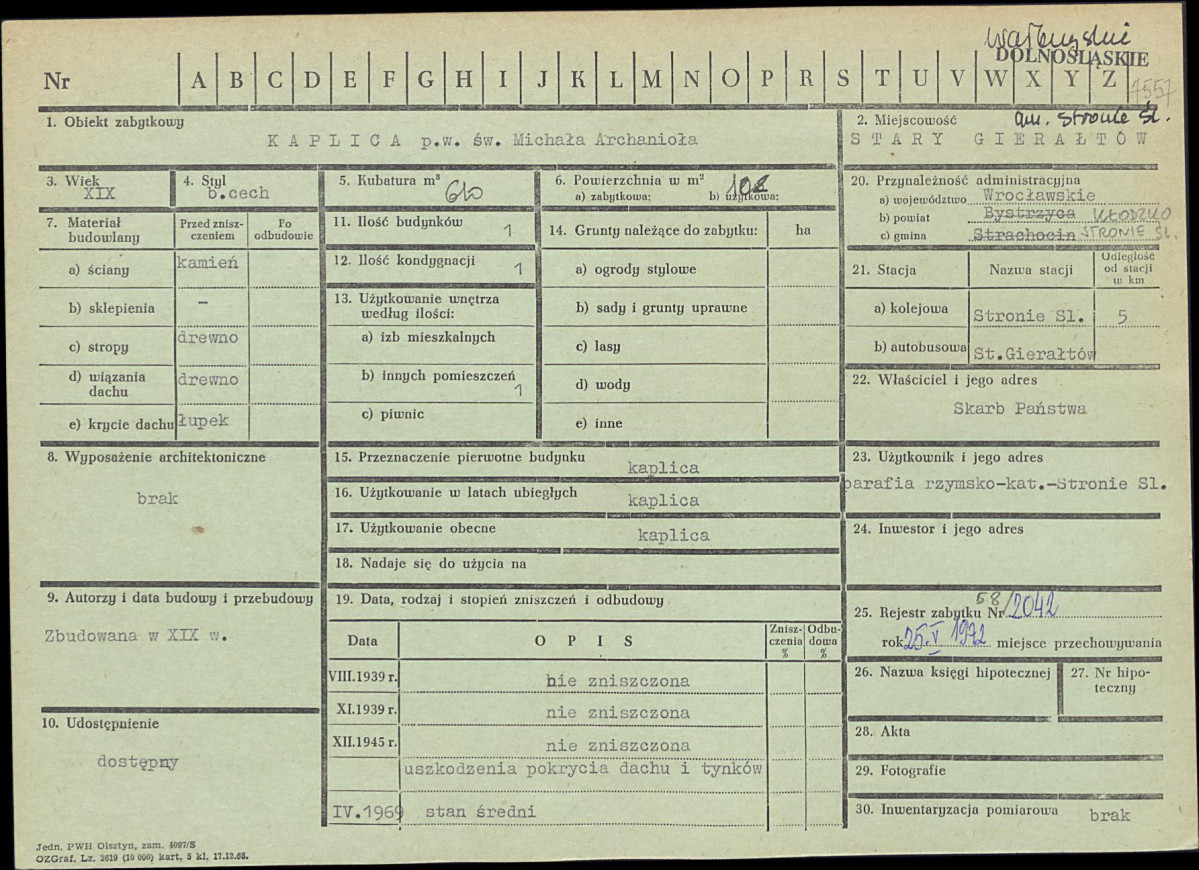 wałbrzyskie
DOLNOŚLĄSKIE
Nr A B C D E F G H I J K L M N O P R S T U V W X Y Z
1557
1. Obiekt zabytkowy
KAPLICA p.w. św. Michała Archanioła
2. Miejscowość
gm. Stronie Śl.
STARY GIERAŁTÓW
3. Wiek
XIX
4. Styl
b.cech
5. Kubatura m³
610
6. Powierzchnia w m²
a) zabytkowa: b) użytkowa:
108
7. Materiał budowlany
Przed zniszczeniem
Po odbudowie
a) ściany kamień
b) sklepienia –
c) stropy drewno
d) wiązania dachu drewno
e) krycie dachu łupek
8. Wyposażenie architektoniczne
brak
9. Autorzy i data budowy i przebudowy
Zbudowana w XIX w.
10. Udostępnienie
dostępny
11. Ilość budynków 1
12. Ilość kondygnacji 1
13. Użytkowanie wnętrza
według ilości:
a) izb mieszkalnych
b) innych pomieszczeń 1
c) piwnic
14. Grunty należące do zabytku: ha
a) ogrody stylowe
b) sady i grunty uprawne
c) lasy
d) wody
e) inne
15. Przeznaczenie pierwotne budynku kaplica
16. Użytkowanie w latach ubiegłych kaplica
17. Użytkowanie obecne kaplica
18. Nadaje się do użycia na
19. Data, rodzaj i stopień zniszczeń i odbudowy
Data OPIS Zniszczenia % Odbudowa %
VIII.1939 r. nie zniszczona
XI.1939 r. nie zniszczona
XII.1945 r. nie zniszczona
uszkodzenia pokrycia dachu i tynków
IV.1969 stan średni
20. Przynależność administracyjna
a) województwo Wrocławskie
b) powiat Bystrzyca KŁODZKO
c) gmina Strachocin STRONIE ŚL.
21. Stacja Nazwa stacji Odległość od stacji w km
a) kolejowa Stronie Sl. 5
b) autobusowa St.Gierałtów
22. Właściciel i jego adres
Skarb Państwa
23. Użytkownik i jego adres
parafia rzymsko-kat.-Stronie Sl.
24. Inwestor i jego adres
25. Rejestr zabytku Nr 58/2042
rok 25.V 1972 miejsce przechowywania
26. Nazwa księgi hipotecznej
27. Nr hipoteczny
28. Akta
29. Fotografie
30. Inwentaryzacja pomiarowa brak
Jedn. PWH Olsztyn, zam. 4097/S
OZGraf. Lz. 2619 (10 000) kart. 5 kl. 17.12.68.